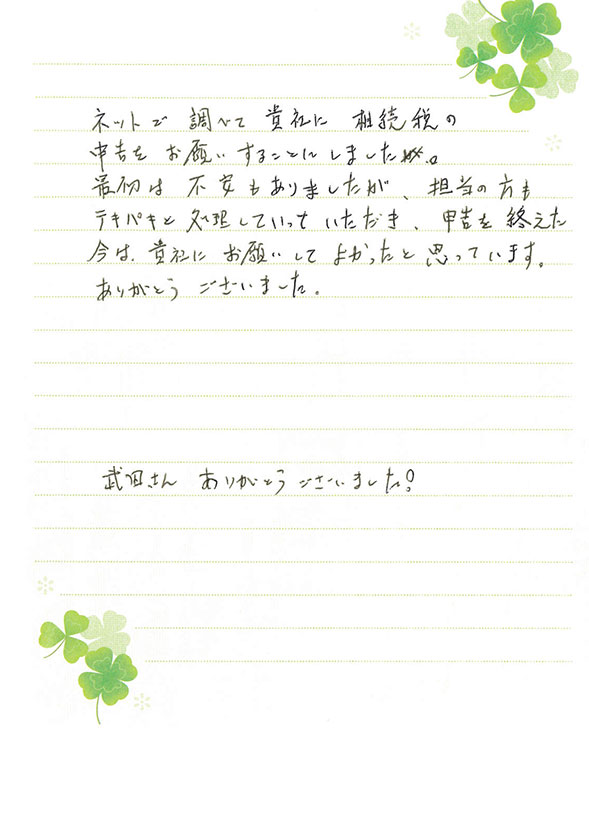 ネットで 調べて 貴社に 相続税の
申告を お願いすることにしました。
最初は 不安もありましたが、担当の方も
テキパキと処理していっていただき、申告を終えた
今は、貴社にお願いしてよかったと思っています。
ありがとう ございました。
武田さん ありがとうございました!